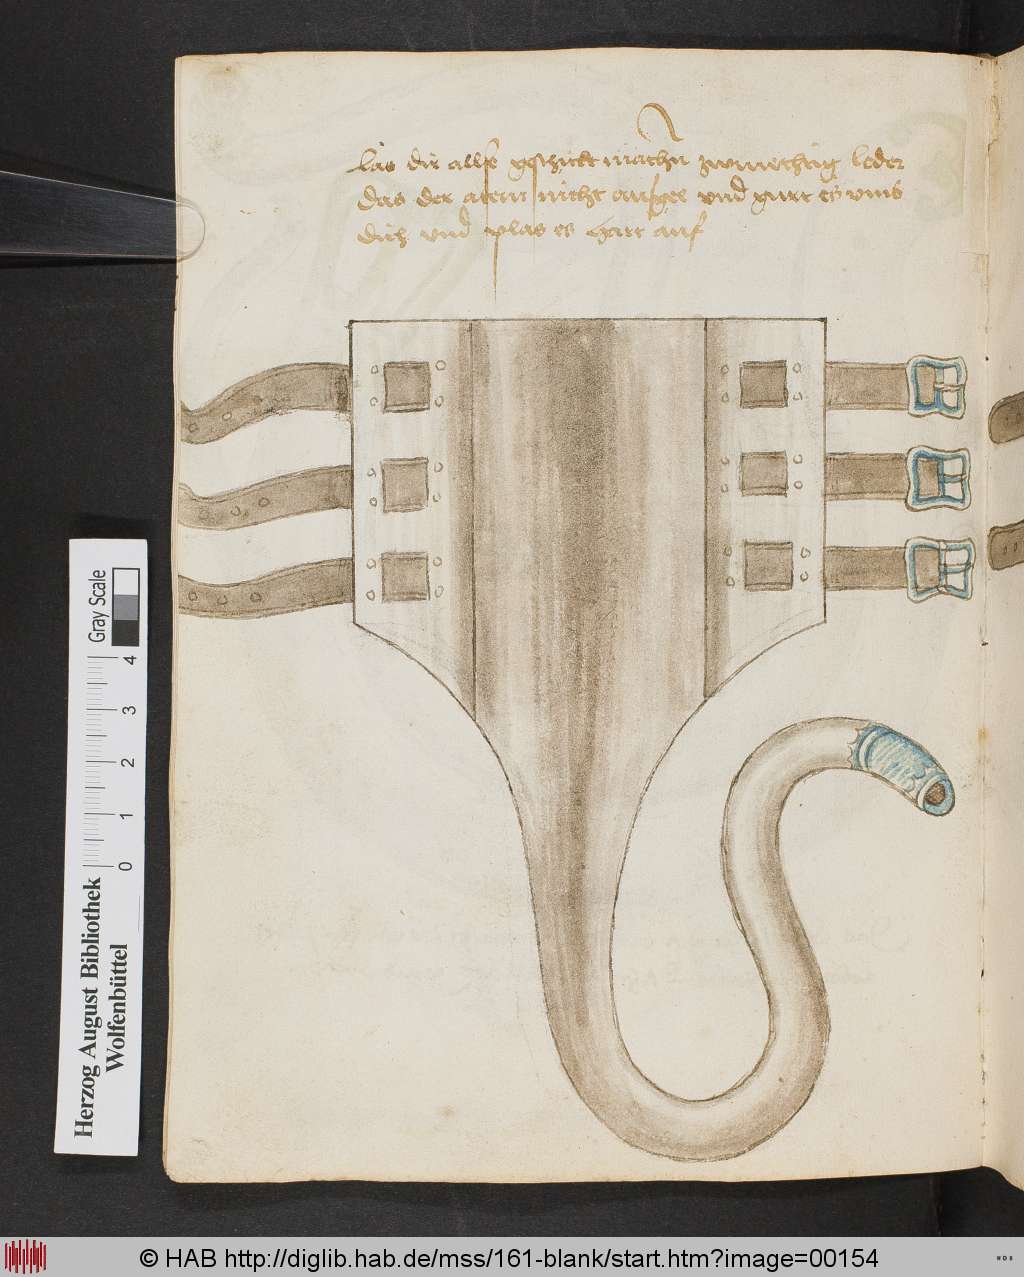 las dir allso geschickt machen zwinethig leder
das der atem nicht ausgee vnd gurt es vmb
dich vnd plas es hart auf
Gray Scale
0 1 2 3 4
Herzog August Bibliothek
Wolfenbüttel
© HAB http://diglib.hab.de/mss/161-blank/start.htm?image=00154